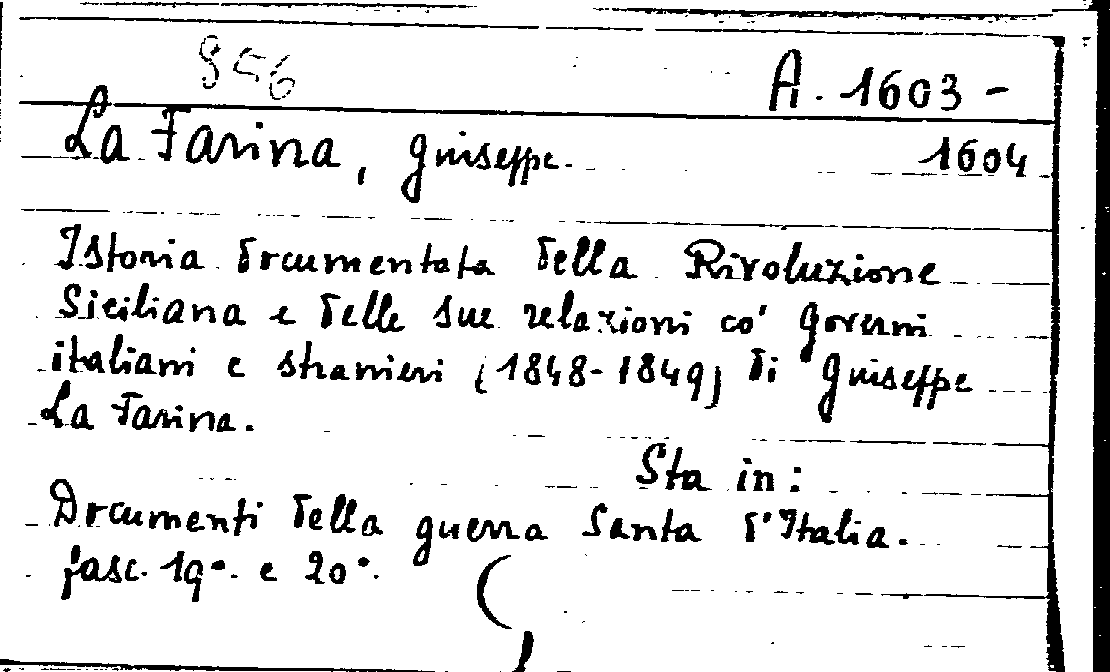 856
A. 1603 -
La Farina, Giuseppe. 1604
Istoria documentata della Rivoluzione
Siciliana e delle sue relazioni co' governi
italiani e stranieri (1848-1849) di Giuseppe
La Farina.
Sta in:
Documenti della guerra Santa d'Italia.
fasc. 19°. e 20°.